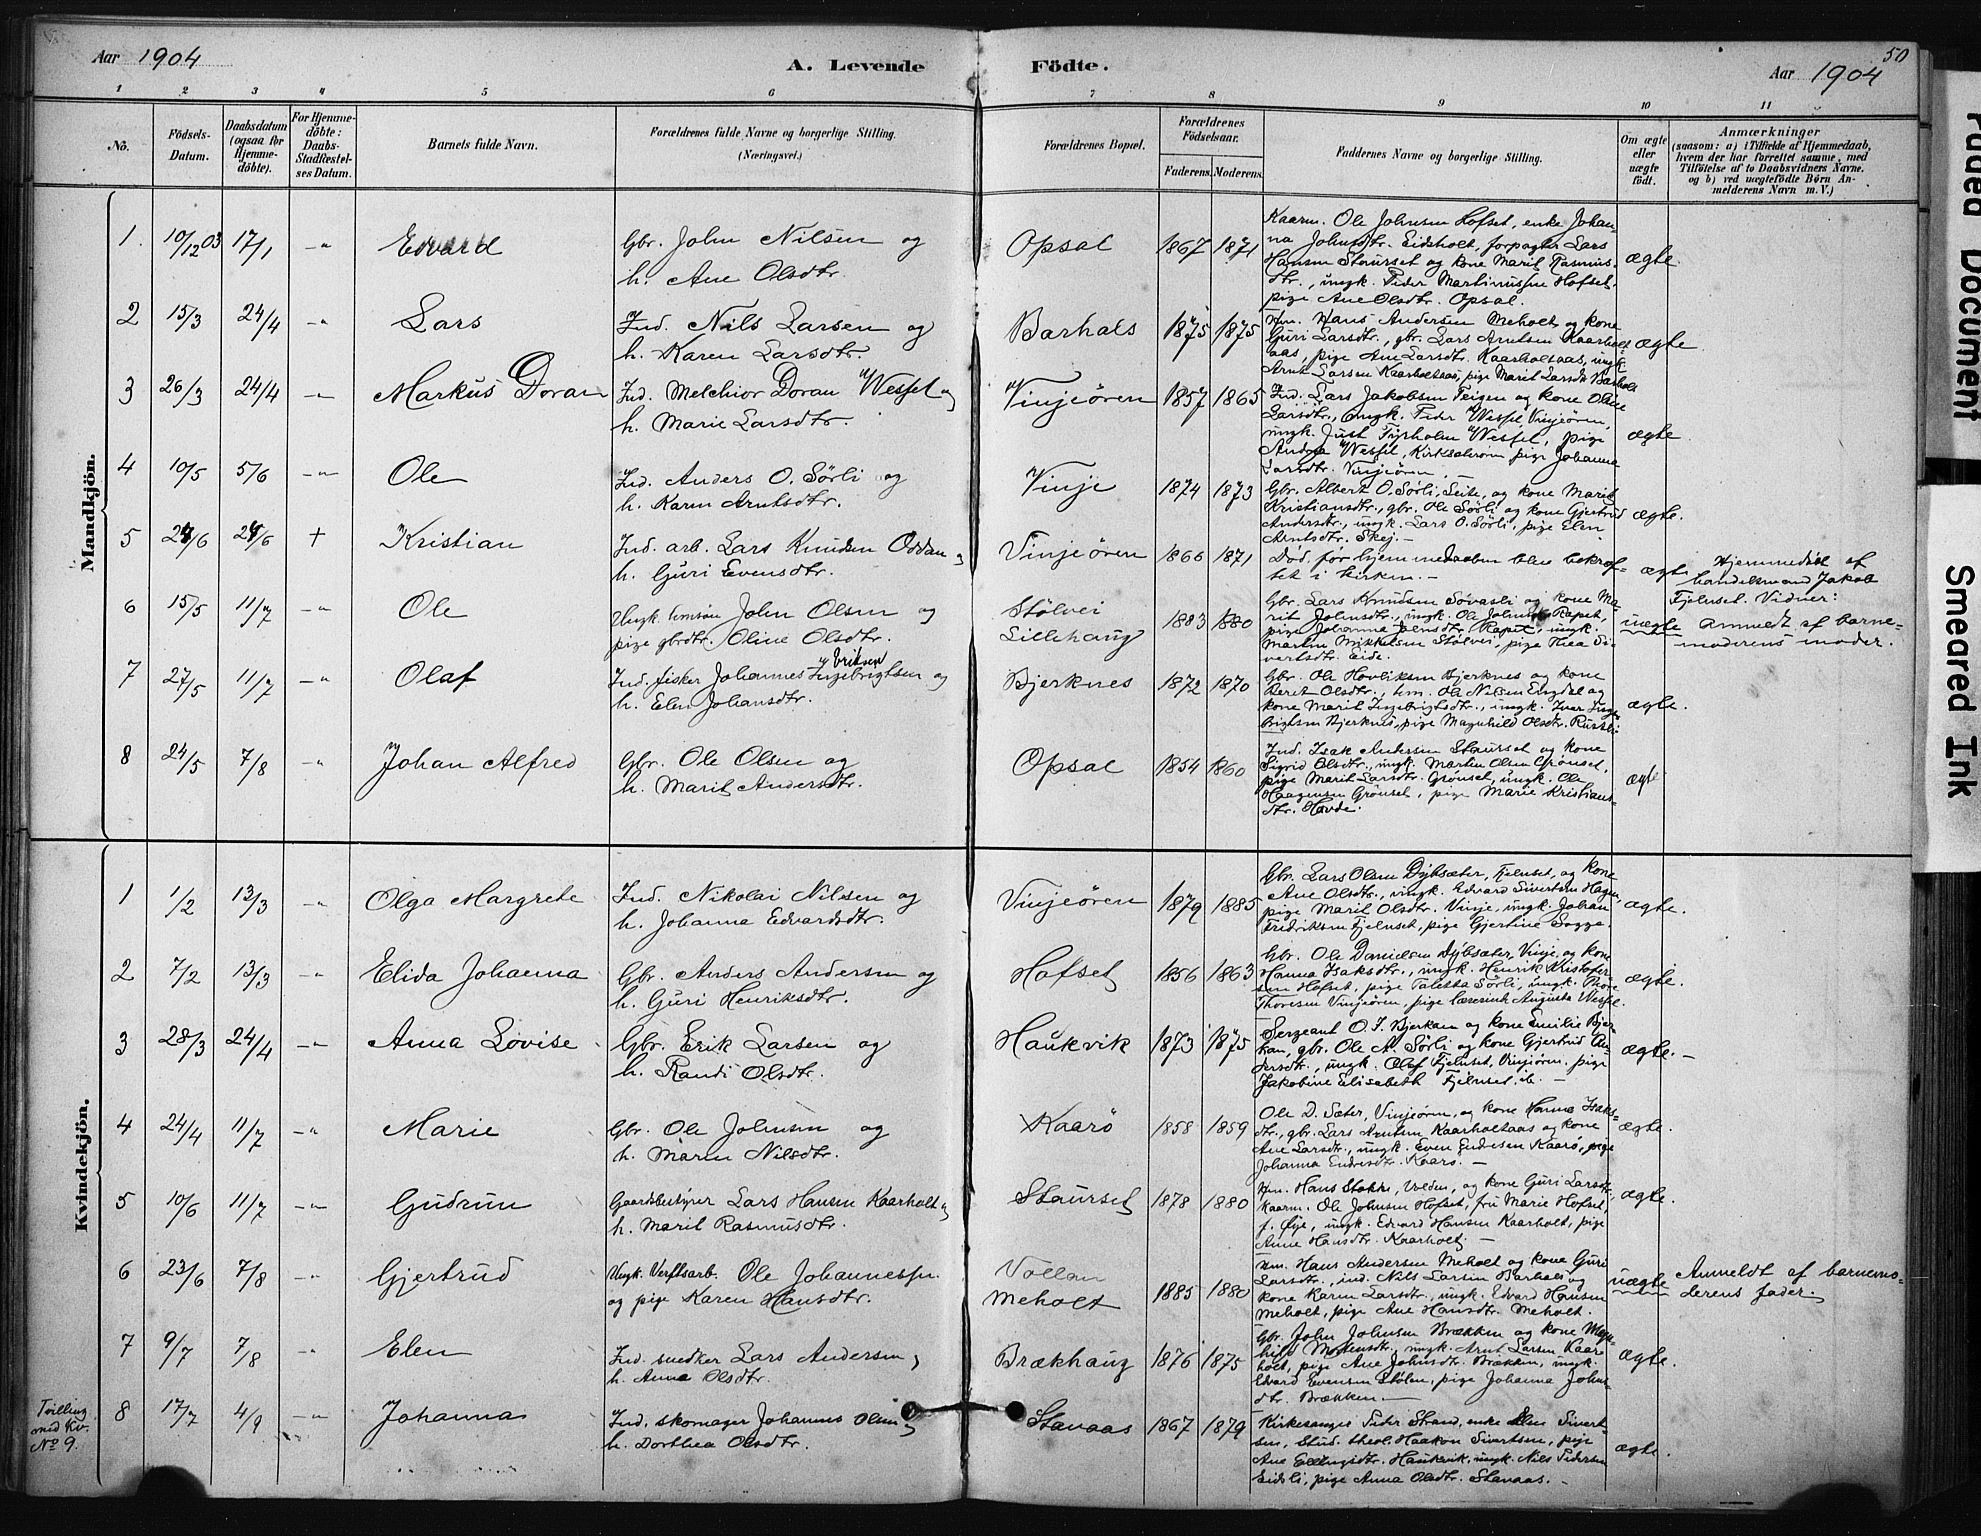 Aar 1904
A. Levende Födte.
50
Aar 1904
1 2 3 4 5 6 7 8 9 10 11
No.
Födsels-Datum.
Daabsdatum (ogsaa for Hjemme-döbte).
For Hjemme-döbte: Daabs-Stadfæstel-ses Datum.
Barnets fulde Navn.
Forældrenes fulde Navne og borgerlige Stilling. (Næringsvei.)
Forældrenes Bopæl.
Forældrenes Födselsaar.
Faderens. Moderens.
Faddernes Navne og borgerlige Stilling.
Om ægte eller uægte födt.
Anmærkninger
(saasom: a) i Tilfælde af Hjemmedaab, hvem der har forrettet samme, med Tilföielse af to Daabsvidners Navne. og b) ved uægtefödte Börn Anmelderens Navn m. V.)
Mandkjön.
1. 10/12 03 17/1 -"- Edvard Gbr. John Nilsen og h. Ane Olsdtr. Opsal 1867 1871 ægte.
Kaarm. Ole Johnsen Hofset, enke Johan-
na Johnsdtr. Eidsholt, forpagter Lars
Hansen Staurset og kone Marit Rasmus-
dtr., ungk. Peder Martinussen Hofset,
pige Ane Olsdtr. Opsal.
2 15/3 24/4 -"- Lars Ind. Nils Larsen og h. Karen Larsdtr. Barhals 1875 1875 ægte
Hm. Hans Andersen Meholt og kone
Guri Larsdtr., gbr. Lars Arntsen Kaarholt-
aas, pige Ane Larsdtr. Kaarholtaas, ungk.
Arnt Larsen Kaarholtaas, pige Marit Larsdtr. Barhals
3 26/3 24/4 -"- Markus Doran Ind. Melchior Doran Wessel og h. Marie Larsdtr. Vinjeören 1857 1865 ægte.
Ind. Lars Jakobsen Teigen og kone Oline
Larsdtr., ungk. Peder Wessel Vinjeören,
ungk. Just Fyrholm Wessel, pige
Andrea Wessel, Kirksæteröen pige Johanna
Larsdtr. Vinjeören. -
4 10/5 5/6 -"- Ole Ind. Anders O. Sörli og h. Karen Arntsdtr. Vinje 1874 1873 ægte.
Gbr. Albert O. Sörli, Leite, og kone Marit
Kristiansdtr., gbr. Ole Sörli og kone Gjertrud
Andersdtr., ungk. Lars O. Sörli, pige Elen
Arntsdtr. Skej. -
5 24/6 24/6 + Kristian Ind. arb. Lars Knudsen Oddan og h. Guri Evensdtr. Vinjeören 1866 1871 ægte
Död, för hjemmedaaben blev bekræf-
tet i kirken. -
Hjemmedöbt af
handelsmand Jakob
Fjelnset. Vidner:
6 15/5 11/7 -"- Ole Ungk. tomtön John Olsen og pige gbrdtr. Oline Olsdtr. Stölvei Lillehaug 1883 1880 uægte
Gbr. Lars Knudsen Sövasli og kone Ma-
rit Johnsdtr., ungk. Ole Johnsen Rapet,
pige Johanna Johnsdtr. Rapet, ungk.
Martin Mikkelsen Stölvei, pige Thea Si-
vertsdtr. Eide.
Anmeldt af barne-
moderens moder.
7 27/5 11/7 -"- Olaf Ind. fisker Johannes Eriksen Ingebrigtsen og h. Elen Johansdtr. Bjerknes 1872 1870 ægte.
Gbr. Ole Hovliksen Bjerknes og kone
Beret Olsdtr., hm. Ole Nilsen Engdal og
kone Marit Ingebrigtsdtr., ungk. Ivar Inge-
brigtsen Bjerknes, pige Magnhild Olsdtr. Rustli
8 24/5 7/8 -"- Johan Alfred Gbr. Ole Olsen og h. Marit Andersdtr. Opsal 1854 1860 ægte
Ind. Isak Andersen Staurset og kone
Sigrid Olsdtr., ungk. Morten Olsen Grönset,
pige Marit Larsdtr. Grönset, ungk. Ole
Haagensen Grönset, pige Marie Kristians-
dtr. Hovde.
Kvindekjön.
1 1/2 13/3 -"- Olga Margrete Ind. Nikolai Nilsen og h. Johanna Edvardsdtr. Vinjeören 1879 1885 ægte.
Gbr. Lars Olsen Dybsæter, Fjelnset, og kone
Ane Olsdtr., ungk. Edvard Sivertsen Hagen,
pige Marit Olsdtr. Vinje, ungk. Johan
Fredriksen Fjelnset, pige Gjertine Sogge.
2 7/2 13/3 -"- Elida Johanna Gbr. Anders Andersen og h. Guri Henriksdtr. Hofset 1856 1863 ægte.
Gbr. Ole Danielsen Dybsæter, Vinje, og kone
Hanna Isaksdtr., ungk. Henrik Kristofer-
sen Hofset, pige Paletta Sörli, ungk. Thore
Thoresen Vinjeören, pige lærerinde Augusta Wessel.
3 28/3 24/4 -"- Anna Lovise Gbr. Erik Larsen og h. Randi Olsdtr. Haukvik 1873 1875 ægte. -
Sergeant O. J. Bjerkan og kone Emilie Bjer-
kan, gbr. Ole A. Sörli og kone Gjertrud An-
dersdtr., ungk. Olaf Fjelnset, Vinjeören, pige
Jakobine Elisabeth Fjelnset, ib. -
4 24/4 11/7 -"- Marie Gbr. Ole Johnsen og h. Maren Nilsdtr. Kaarö 1858 1859 ægte.
Ole D. Sæter, Vinjeören, og kone Hanna Isaks-
dtr., gbr. Lars Arntsen Kaarholtaas og kone
Ane Larsdtr., ungk. Even Endresen Kaarö, pige
Johanna Endresdtr. Kaarö. -
5 10/6 11/7 -"- Gudrun Gaardsbestyrer Lars Hansen Kaarholt og h. Marit Rasmusdtr. Staurset 1878 1880 ægte.
Hm. Hans Stokke, Volden, og kone Guri Larsdtr.
kaarm. Ole Johnsen Hofset, fru Marie Hofset,
f. Öje, ungk. Edvard Hansen Kaarholt, pige
Anne Hansdtr. Kaarholt. -
6 23/6 7/8 -"- Gjertrud Ungk. Verftsarb. Ole Johannessen og pige Karen Hansdtr. Vollan Meholt 1885 1880 uægte
Hm. Hans Andersen Meholt og kone Guri
Larsdtr., ind. Nils Larsen Barhals og
kone Karen Larsdtr., ungk. Edvard Hansen
Meholt, pige Ane Hansdtr. Meholt.
Anmeldt af barnemo-
derens fader.
7 9/7 7/8 -"- Elen Ind. snedker Lars Andersen og h. Anna Olsdtr. Brækhaug 1876 1875 ægte.
Gbr. John Johnsen Brækken og kone Magn-
hild Mortensdtr., ungk. Arnt Larsen Kaar-
holt, pige Ane Johnsdtr. Brækken, ungk.
Edvard Evensen Stölen, pige Johanna Johns-
dtr. Brækken. -
Tvilling med Kv. No 9.
8 17/7 4/9 -"- Johanna Ind. skomager Johannes Olsen og h. Dorthea Olsdtr. Stavaas 1867 1879 ægte.
Kirkesanger Peder Strand, enke Elen Sivert-
sen, Stud. theol. Haakon Sivertsen, pige
Ane Ellingsdtr. Haukvik, ungk. Nils Pedersen
Eidsli, pige Anna Olsdtr. Stavaas. -
Faded Document
Smeared Ink